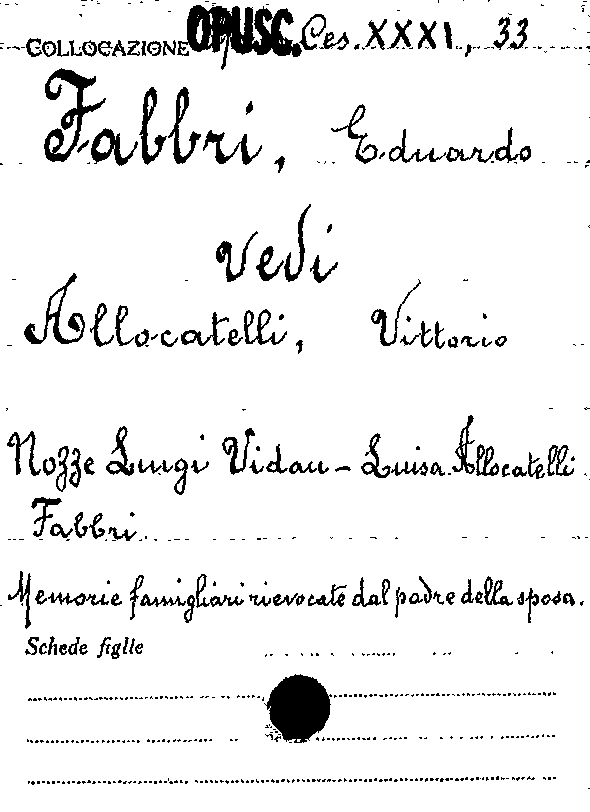 COLLOCAZIONE OPUSC. Ces. XXXI, 33
Fabbri, Eduardo
vedi
Allocatelli, Vittorio
Nozze Luigi Vidau - Luisa Allocatelli
Fabbri.
Memorie famigliari rievocate dal padre della sposa.
Schede figlie